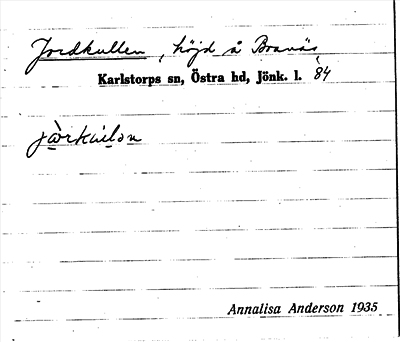 Jordkullen, höjd å Branäs
Karlstorps sn, Östra hd, Jönk. l. 84
Annalisa Anderson 1935